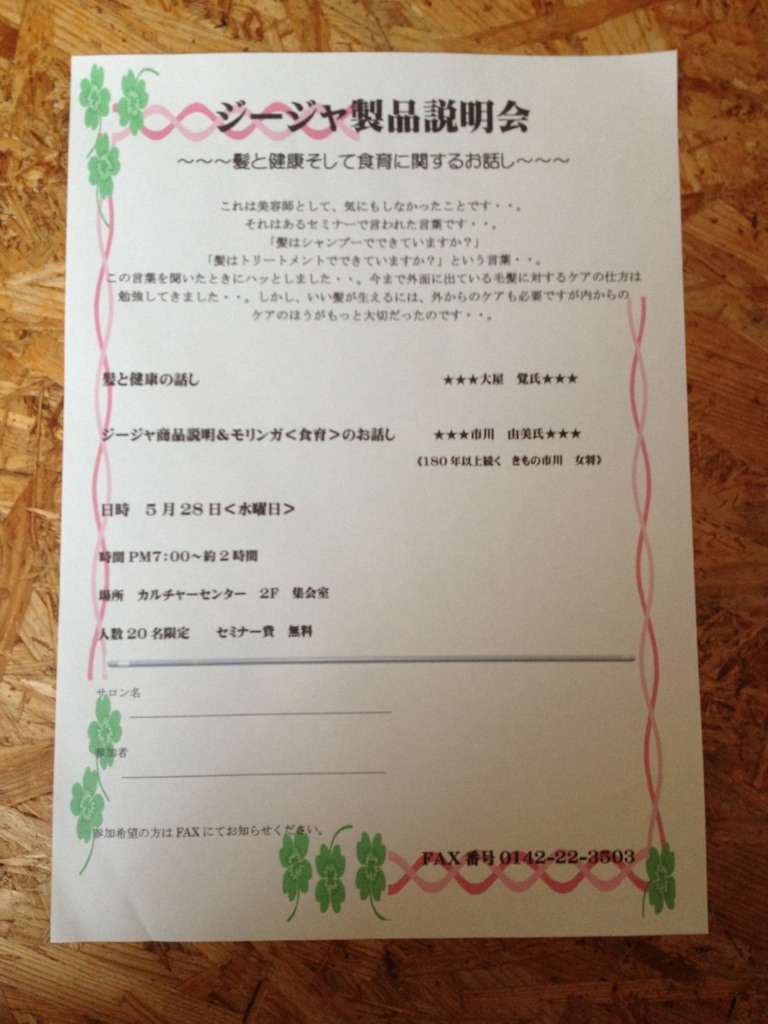 ジージャ製品説明会
～～～髪と健康そして食育に関するお話し～～～
これは美容師として、気にもしなかったことです・・。
それはあるセミナーで言われた言葉です・・。
「髪はシャンプーでできていますか？」
「髪はトリートメントでできていますか？」という言葉・・。
この言葉を聞いたときにハッとしました・・。今まで外面に出ている毛髪に対するケアの仕方は
勉強してきました・・。しかし、いい髪が生えるには、外からのケアも必要ですが内からの
ケアのほうがもっと大切だったのです・・。
髪と健康の話し ★★★大屋 覚氏★★★
ジージャ商品説明＆モリンガ＜食育＞のお話し ★★★市川 由美氏★★★
《180年以上続く きもの市川 女将》
日時 5月28日＜水曜日＞
時間 PM7：00～約2時間
場所 カルチャーセンター 2F 集会室
人数20名限定 セミナー費 無料
サロン名
参加者
参加希望の方はFAXにてお知らせください。
FAX番号0142-22-3503